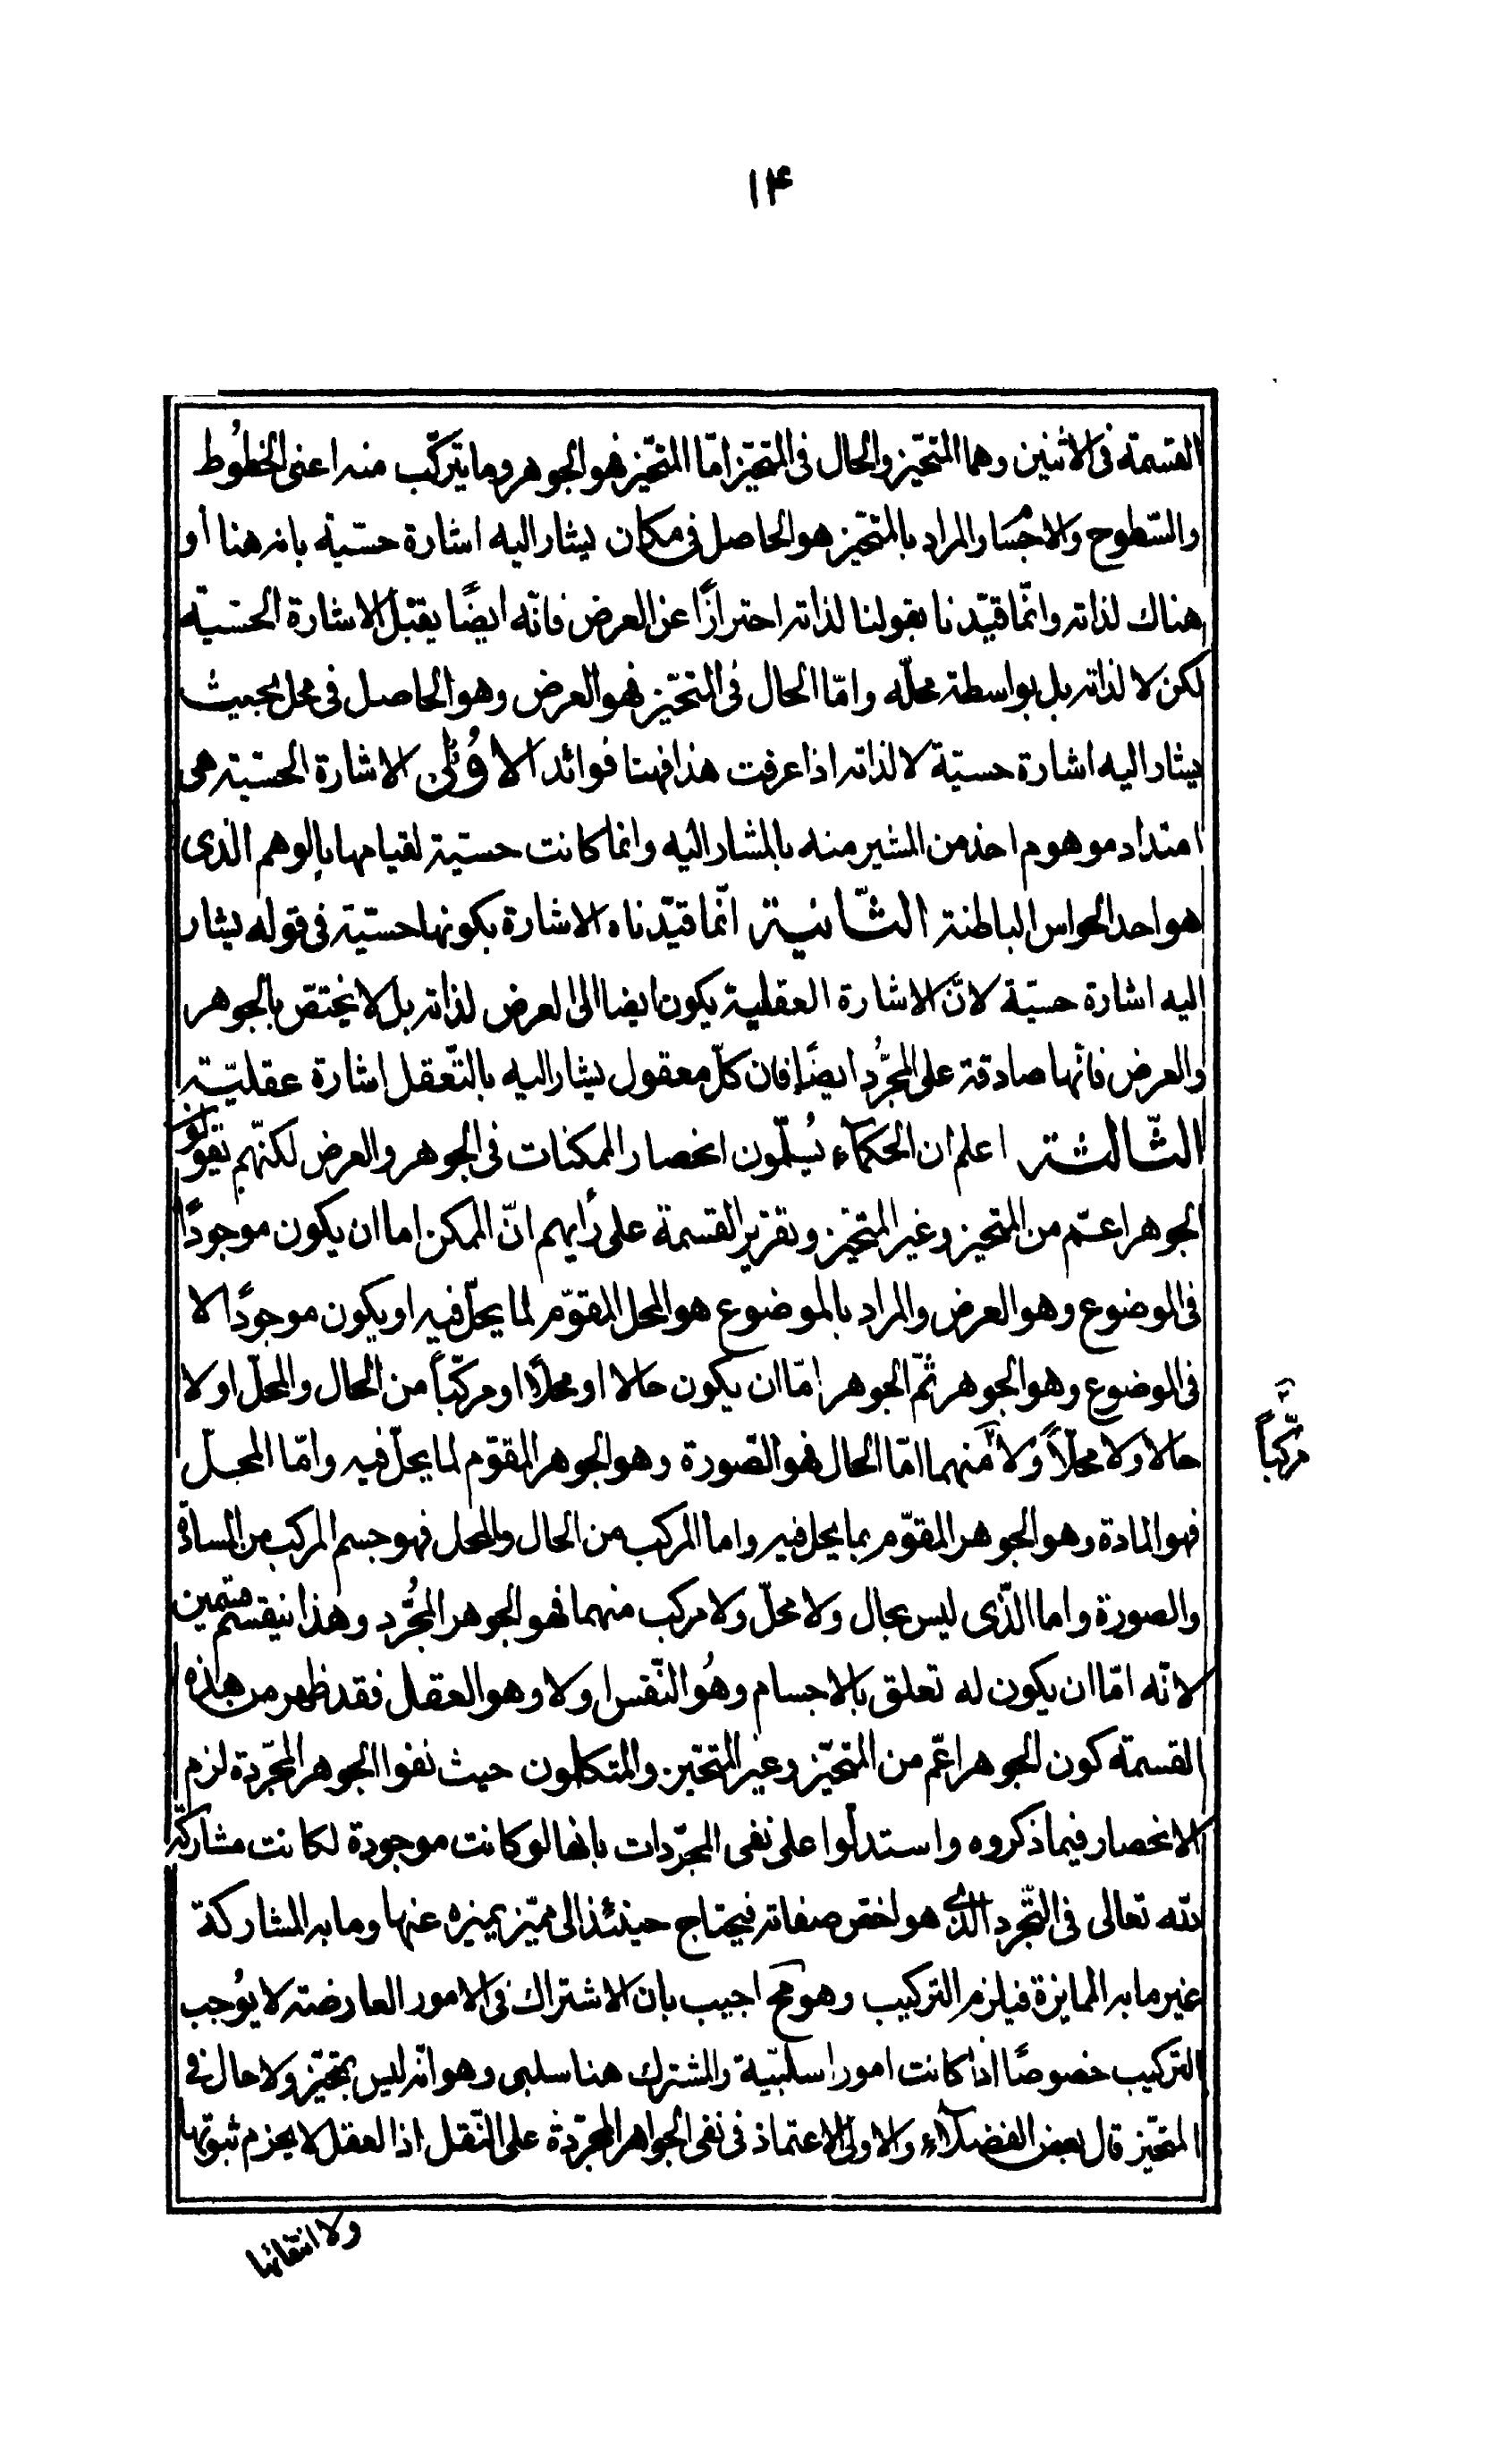 ۱۴
القسمة فى الاثنين وهما المتحيّز والحال فى المتحيّز امّا المتحيّز فهو الجوهر وما يتركّب منه اعنى الخطُوط
والسّطوح والاجْسَام والمراد بالمتحيّز هو الحاصل فى مكان يشار اليه اشارة حسّيّة بانه هنا أو
هناك لذاته وانّما قيّدنا بقولنا لذاته احترازًا عن العرض فانّه ايضًا يقبل الاشارة الحسّيّة
لكن لا لذاته بل بواسطة محلّه وامّا الحال فى المتحيّز فهو العرض وهو الحاصل فى محل بحيث
يشار اليه اشارة حسيّة لا لذاته اذا عرفت هذا فهنا فوائد الاوُلٰى الاشارة الحسّيّة هى
امتداد موهوم اخذ من المشير منه بالمشار اليه وانما كانت حسيّة لقيامها بالوهم الذى
هو احد الحواس الباطنة الثّانية انّما قيّدناه الاشارة بكونها حسّيّة فى قوله يشار
اليه اشارة حسيّة لانّ الاشارة العقلية يكون ايضا الى العرض لذاته بل لا يختصّ بالجوهر
والعرض فانّها صادقة على المجَّرُد ايضًا فان كلّ معقول يشار اليه بالتّعقل اشارة عقليّة
الثّالثة اعلم ان الحكمآء يُسلّمون انحصار الممكنات فى الجوهر والعرض لكنّهم يقولون
الجوهر اعمّ من المتحيز وغير المتحيّز وتقرير القسمة على رأيهم انّ الممكن اما ان يكون موجودًا
فى الموضوع وهو العرض والمراد بالموضوع هو المحل المقوّم لما يحلّ فيه او يكون موجودًا لا
فى الموضوع وهو الجوهر ثمّ الجوهر امّا ان يكون حالا او محلاً او مركّباً من الحال والمحلّ او لا
حالا ولا محلّاً ولا منهما امّا الحال فهو الصّورة وهو الجوهر المقوّم لما يحلّ فيه وامّا المحلّ
مركّباً
فهو المادة وهو الجوهر المقوّم بما يحل فيه واما المركب من الحال والمحل فهو جسم المركب من المادّة
والصورة واما الّذى ليس بحال ولا محلّ ولا مركب منهما فهو الجوهر المجُرَّد وهذا ينقسم قسمين
لانّه امّا ان يكون له تعلق بالاجسام وهُو النّفس او لا وهو العقل فقد ظهر من هذه
القسمة كون الجوهر اعّم من المتحيّز وغير المتحيّز والمتكلمون حيث نفوا الجوهر المجّردة لزم
الانحصار فيما ذكروه واستدلّوا على نفى المجرّدات بانها لو كانت موجودة لكانت مشاركة
للّه تعالى فى التّجرد الّذى هو اخصّ صفاته فيحتاج حينئذ الى مميّز يميزه عنها وما به المشاركة
غير ما به الممايزة فيلزم التركيب وهو مح اجيب بان الاشتراك فى الامور العارضة لا يوُجب
التركيب خصوصًا اذا كانت امورا سلبيّة والمشترك هنا سلبى وهو انّه ليس بمتحيّز ولا حال فى
المتحيّز قال بعض الفضلآء والاولى الاعتماد فى نفى الجواهر المجّردة على النّقل اذ العقل لا يجزم بثبوتها
ولا انتفائها